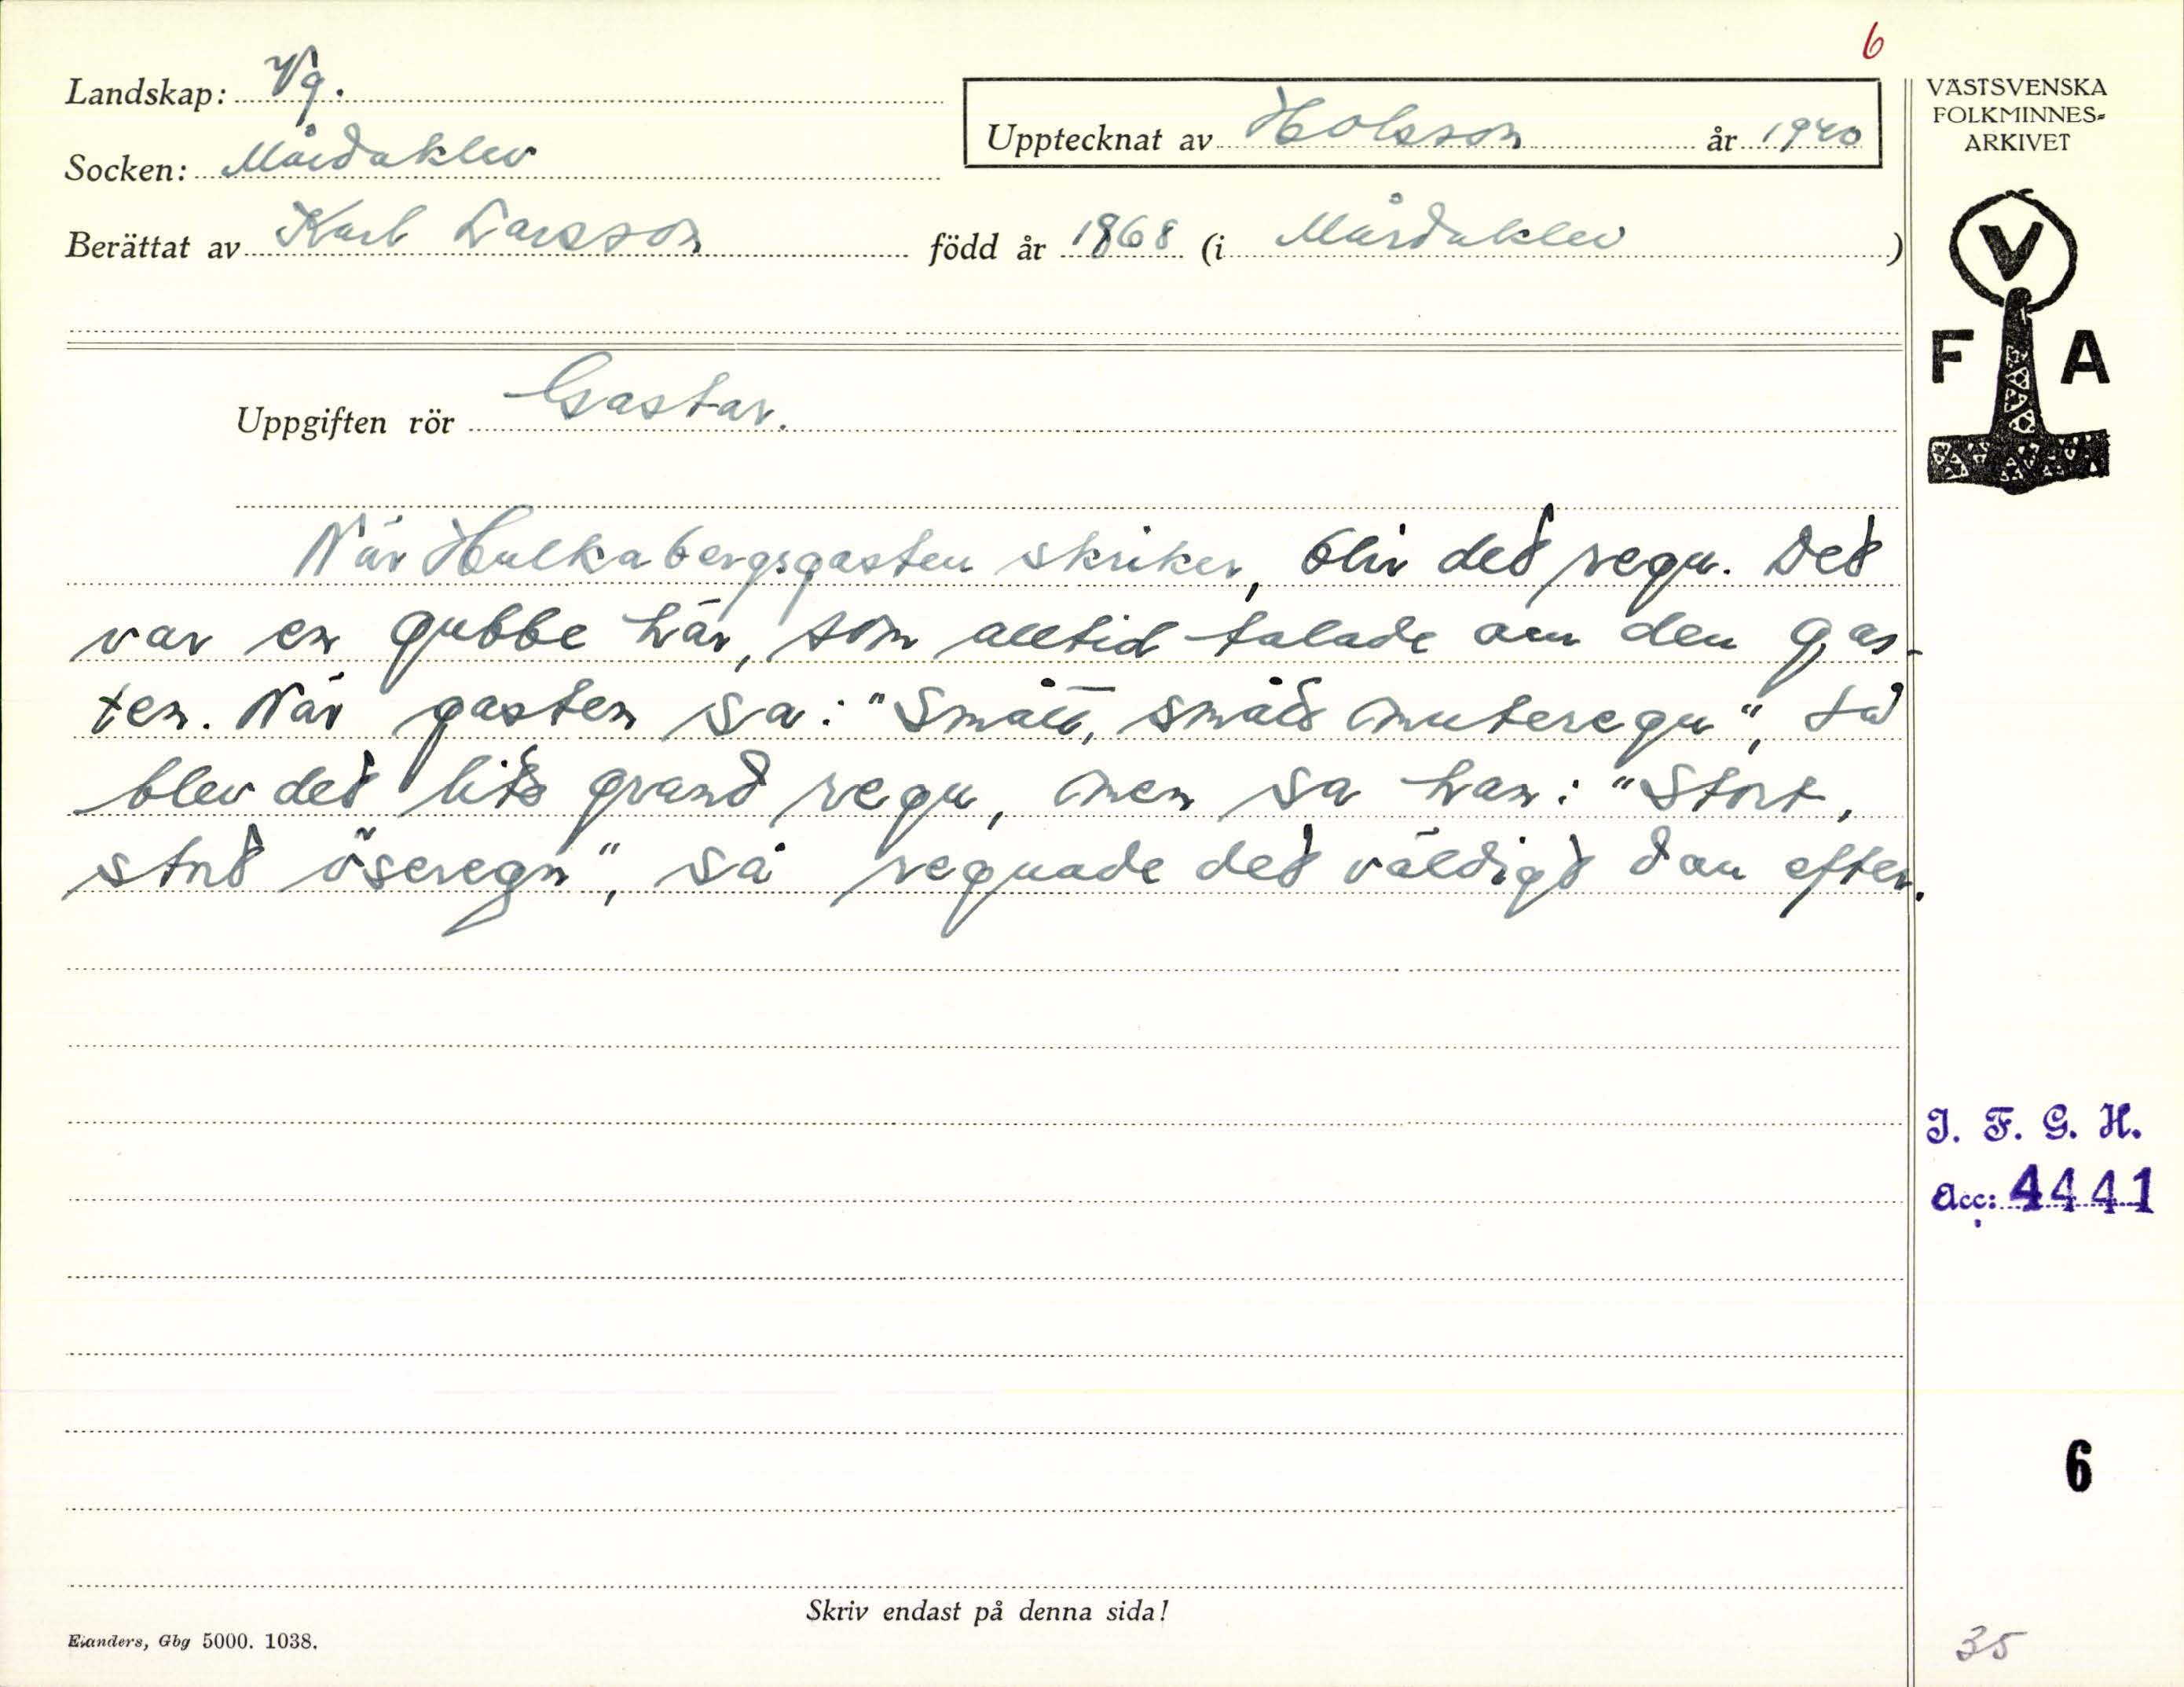 6
Landskap: Vg.
Upptecknat av Holsson år 1940
VÄSTSVENSKA
FOLKMINNES=
ARKIVET
Socken: Mårdaklev
Berättat av Karl Larsson född år 1868 (i Mårdaklev)
V
F A
Uppgiften rör Gastar.
När Hulkabergsgasten skriker, blir det regn. Det
var en gubbe här, som alltid talade om den gas-
ten. När gasten sa: "Smått, smått muteregn", då
blev det lite grand regn, men sa han: "Stort,
stort öseregn", så regnade det väldigt dan efter.
I. F. G. H.
Acc: 4441
6
Skriv endast på denna sida!
Elanders, Gbg 5000. 1038.
35